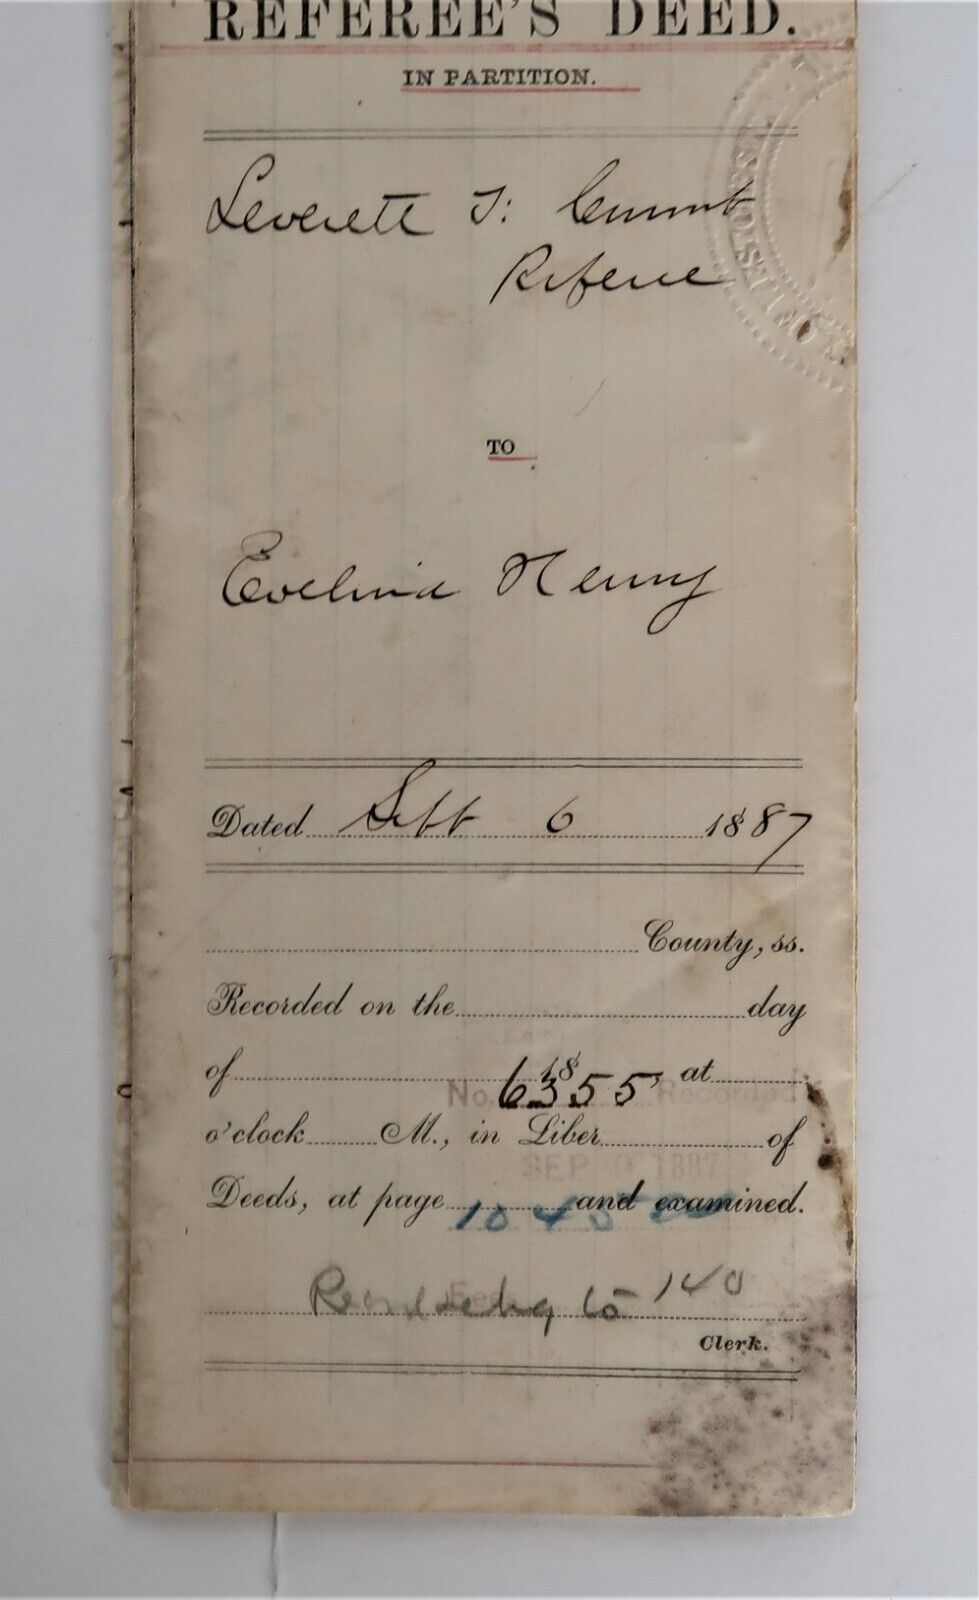 REFEREE'S DEED.
IN PARTITION.
Leverett F.
Referee
TO
Evelina Henry
Dated Sept 6 1887
County, ss.
Recorded on the day
of 18 at
No. 6355 Recorded
o'clock M., in Liber of
SEP 9 1887
Deeds, at page and examined.
1045
Fees
140
Clerk.